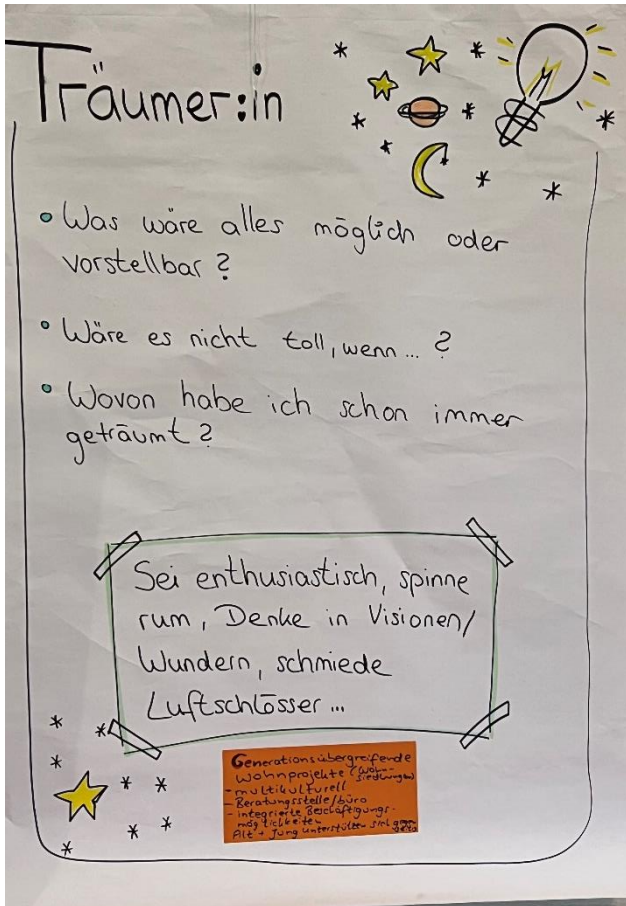 Träumer:in
• Was wäre alles möglich oder
vorstellbar?
• Wäre es nicht toll, wenn... ?
• Wovon habe ich schon immer
geträumt?
Sei enthusiastisch, spinne
rum, Denke in Visionen/
Wundern, schmiede
Luftschlösser...
Generationsübergreifende
wohnprojekte (Woh-
siedlungen)
- multikulturell
- Beratungsstelle/büro
- integrierte Beschäftigungs-
möglichkeiten
Alt + Jung unterstützen sich